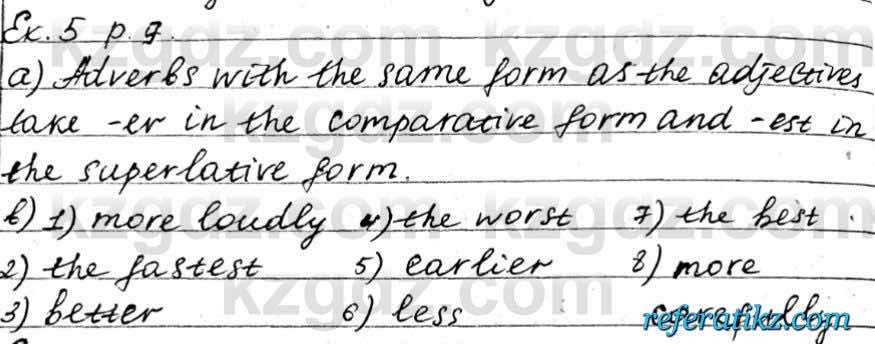 Ex. 5 p. 7.
a) Adverbs with the same form as the adjectives
take -er in the comparative form and -est in
the superlative form.
b) 1) more loudly 4) the worst 7) the best
2) the fastest 5) earlier 8) more
3) better 6) less carefully
kzgdz.com
referatikz.com